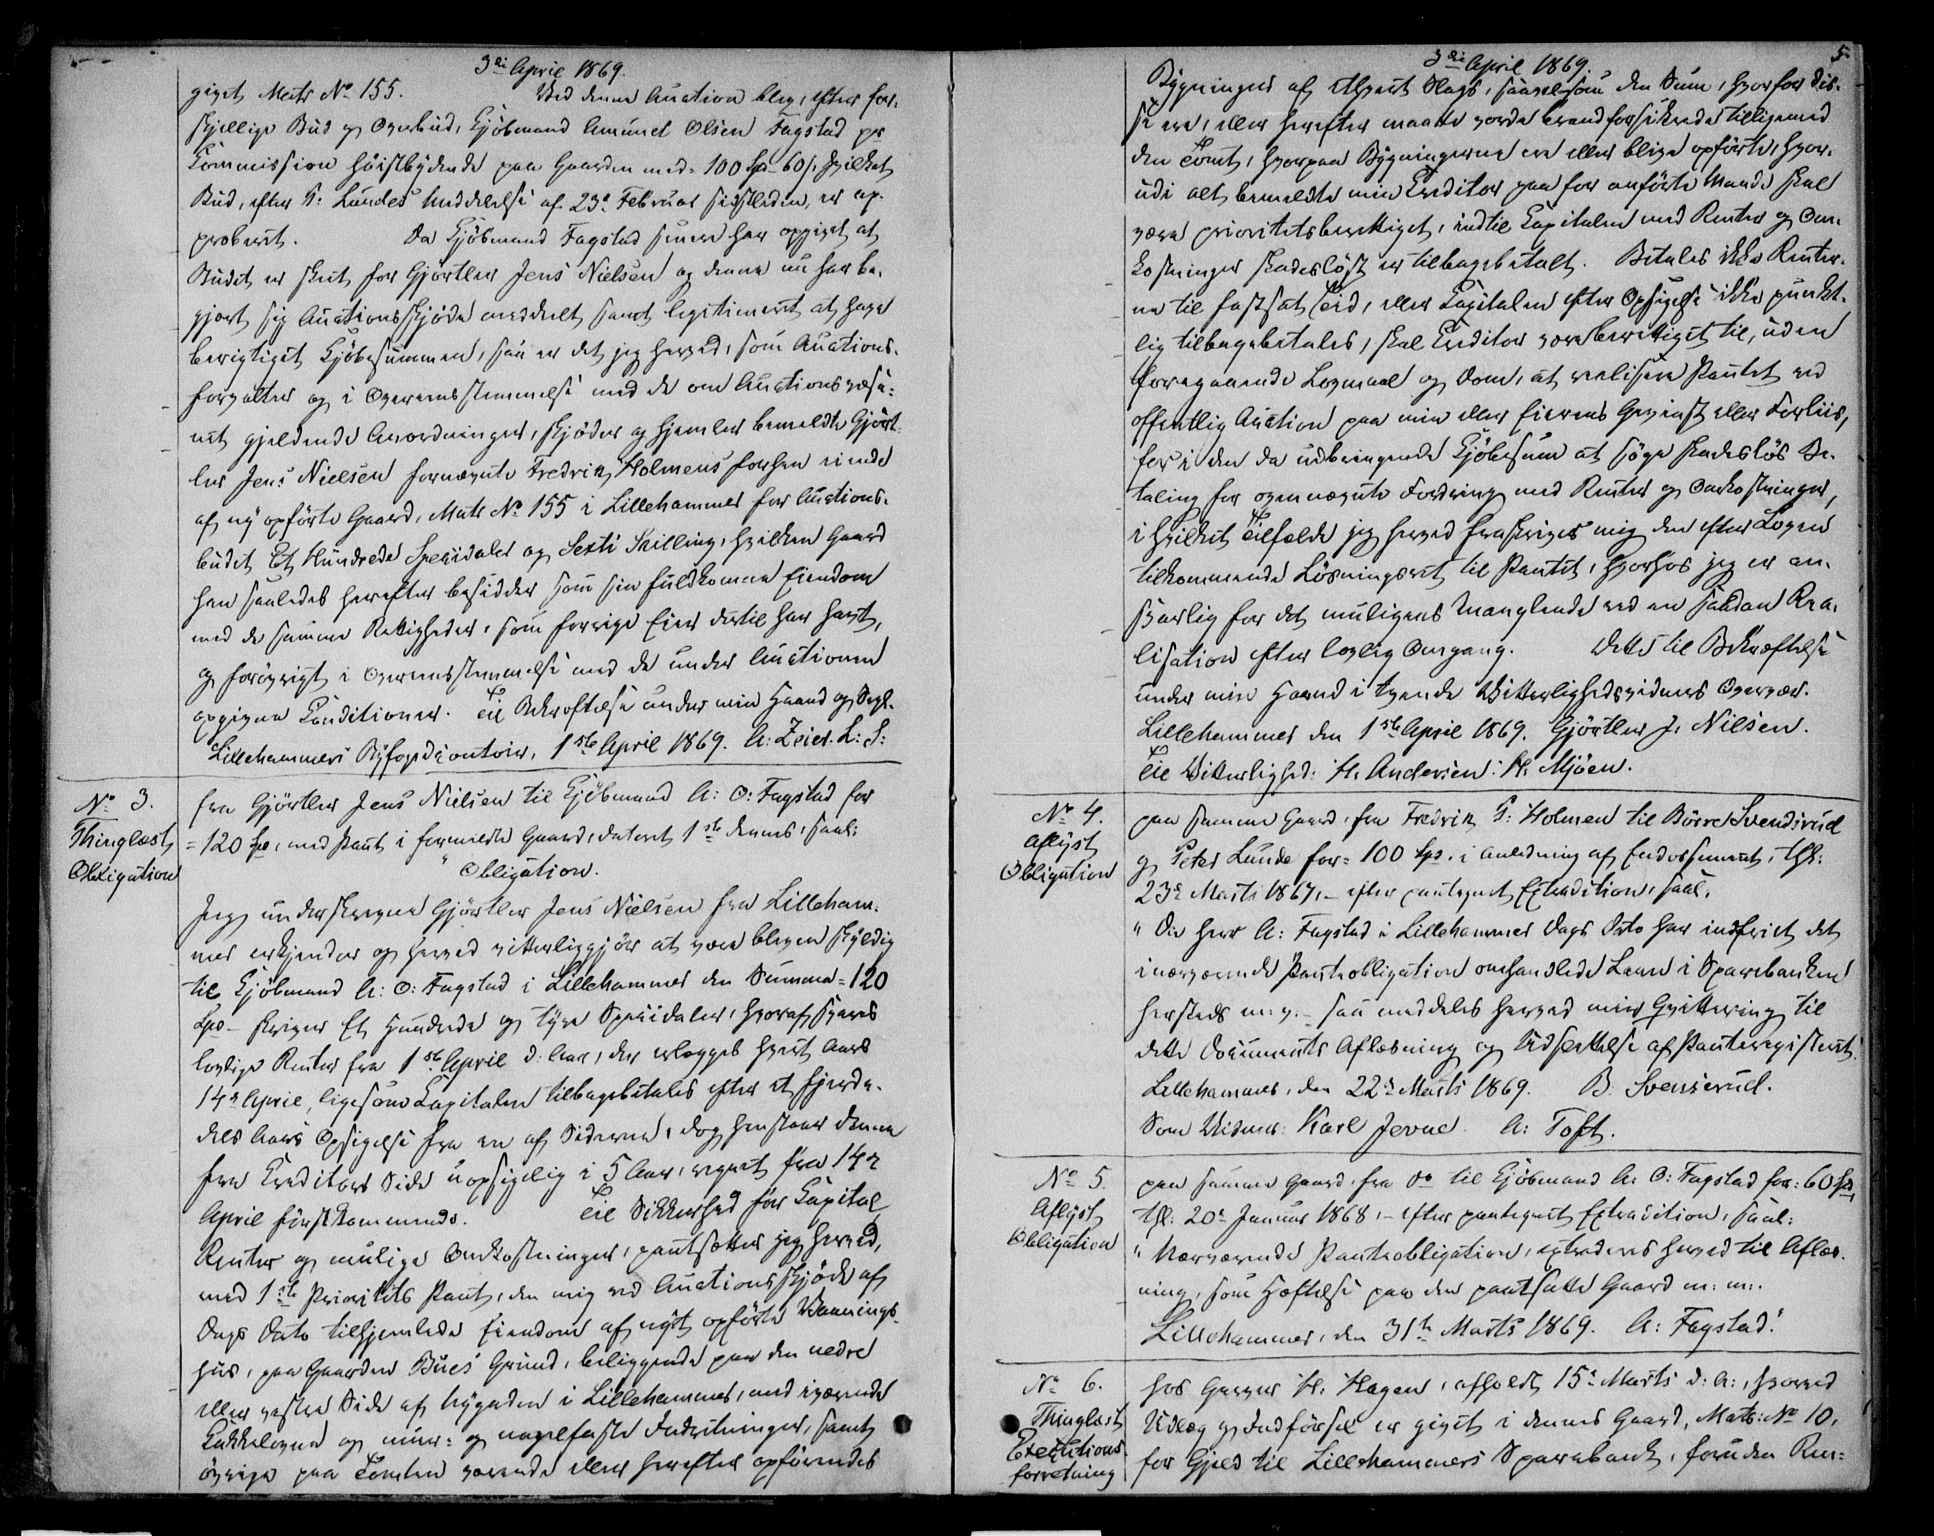 3die April 1869.
givet Matr No 155. Ved denne Auction blev, efter for-
skjellige Bud og Overbud, Kjöbmand Amund Olsen Fagstad pr
Commission höistbydende paa Gaarden med = 100 Spd 60 s. hvilket
Bud, efter P: Lundes Meddelelse af 23de Februar sidstleden, er ap-
proberet. Da Kjöbmand Fagstad senere har opgivet at
Budet er skeet for Gjörtler Jens Nielsen og denne nu har be-
gjært sig Auctionsskjöde meddeelt samt legitimeret at have
berigtiget Kjöbesummen, saa er det jeg herved, som Auctions-
forvalter og i Overeensstemmelse med de om Auctionsvæse-
net gjeldende Anordninger, skjöder og hjemler bemeldte Gjört-
ler Jens Nielsen fornævnte Fredrik Holmens forhen eiende
af ny opförte Gaard, Matr No 155 i Lillehammer for Auctions-
budet Et Hundrede Speciedaler og Sexti Skilling, hvilken Gaard
han saaledes herefter besidder som sin fuldkomne Eiendom
med de samme Rettigheder, som forrige Eier dertil har havt,
og forövrigt i Overeensstemmelse med de under Auctionen
opgivne Conditioner. Til Bekræftelse under min Haand og Segl.
Lillehammers Byfogedcontoir, 1ste April 1869. A: Zeier. L: S:
No 3.
Thinglæst
Obligation
fra Gjörtler Jens Nielsen til Kjöbmand A: O: Fagstad for
= 120 Spd, med Pant i formeldte Gaard, dateret 1ste dennes, saal:
" Obligation.
Jeg underskrevne Gjörtler Jens Nielsen fra Lilleham-
mer erkjender og herved vitterliggjör at være bleven skyldig
til Kjöbmand A: O: Fagstad i Lillehammer den Summa = 120
Spd – skriver Et Hundrede og tyve Speciedaler, hvoraf svares
lovlige Renter fra 1ste April d: Aar, der erlægges hvert Aars
14de April, ligesom Capitalen tilbagebetales efter et fjerde-
dels Aars Opsigelse fra en af Siderne, dog henstaar denne
fra Creditors Side uopsigelig i 5 Aar, regnet fra 14de
April förstkommende. Til Sikkerhed for Capital,
Renter og mulige Omkostninger, pantsætter jeg herved,
med 1ste Prioritets Pant, den mig ved Auctionsskjöde af
Dags Dato tilhjemlede Eiendom af nyt opförte Vaanings-
huus, paa Gaarden Bues Grund, beliggende paa den nedre
eller vestre Side af Nygaden i Lillehammer, med iværende
Kakkelovne og muur- og nagelfaste Indretninger, samt
övrige paa Tomten værende eller herefter opförendes
3die April 1869. 5
Bygninger af ethvert Slags, saavelsom den Sum, hvorfor dis-
se ere, eller herefter maatte vorde brandforsikrede tilligemed
den Tomt, hvorpaa Bygningerne ere eller blive opförte, hvor-
udi alt bemeldte min Creditor paa for anförte Maade skal
være prioritetsberettiget, indtil Capitalen med Renter og Om-
kostninger skadeslöst er tilbagebetalt. Betales ikke Renter-
ne til fastsat Tid, eller Capitalen efter Opsigelse ikke punkt-
lig tilbagebetales, skal Creditor være berettiget til, uden
foregaaende Lovmaal og Dom, at realisere Pantet ved
offentlig Auction paa min eller Eierens Gevinst eller Forliis,
for i den da udbringende Kjöbesum at söge skadeslös Be-
taling for ovennævnte Fordring med Renter og Omkostninger,
i hvilket Tilfælde jeg herved fraskriver mig den efter Loven
tilkommende Lösningsret til Pantet, hvorhos jeg er an-
svarlig for det muligens Manglende ved en saadan Rea-
lisation efter lovlig Omgang. Dette til Bekræftelse
under min Haand i tvende Vitterlighedsvidners Overvær.
Lillehammer den 1ste April 1869. Gjörtler J. Nilsen.
Til Vitterlighed: H. Andersen. H. Mjöen.
No 4.
aflyst
Obligation
paa samme Gaard, fra Fredrik P: Holmen til Börre Svendsrud
og Peter Lunde for = 100 Spd. i Anledning af Endossement, thl:
23de Marts 1867, – efter paategnet Extradition, saal:
" Da Herr A: Fagstad i Lillehammer Dags Dato har indfriet det
i nærværende Pantobligation omhandlede Laan i Sparebanken
hersteds m: v: – saa meddeles herved min Qvittering til
dette Documents Aflæsning og Udslettelse af Panteregisteret.
Lillehammer, den 22de Marts 1869. B. Svenserud.
Som Vidner: Karl Jevne. A: Toft.
No 5.
Aflyst
Obligation
paa samme Gaard, fra Do til Kjöbmand A: O: Fagstad for: 60 Spd,
thl: 20de Januar 1868, – efter paategnet Extradition, saal:
" Nærværende Pantobligation, extraderes herved til Aflæs-
ning, som Hæftelse paa den pantsatte Gaard m: m:.
Lillehammer, den 31te Marts 1869. A: Fagstad."
No 6.
Thinglæst
Executions-
forretning
hos Garver H. Hagen, afholdt 15de Marts d: A:, hvorved
Udlæg og Indförsel er givet i dennes Gaard, Matr: No 10,
for Gjeld til Lillehammers Sparebank, foruden Ren-